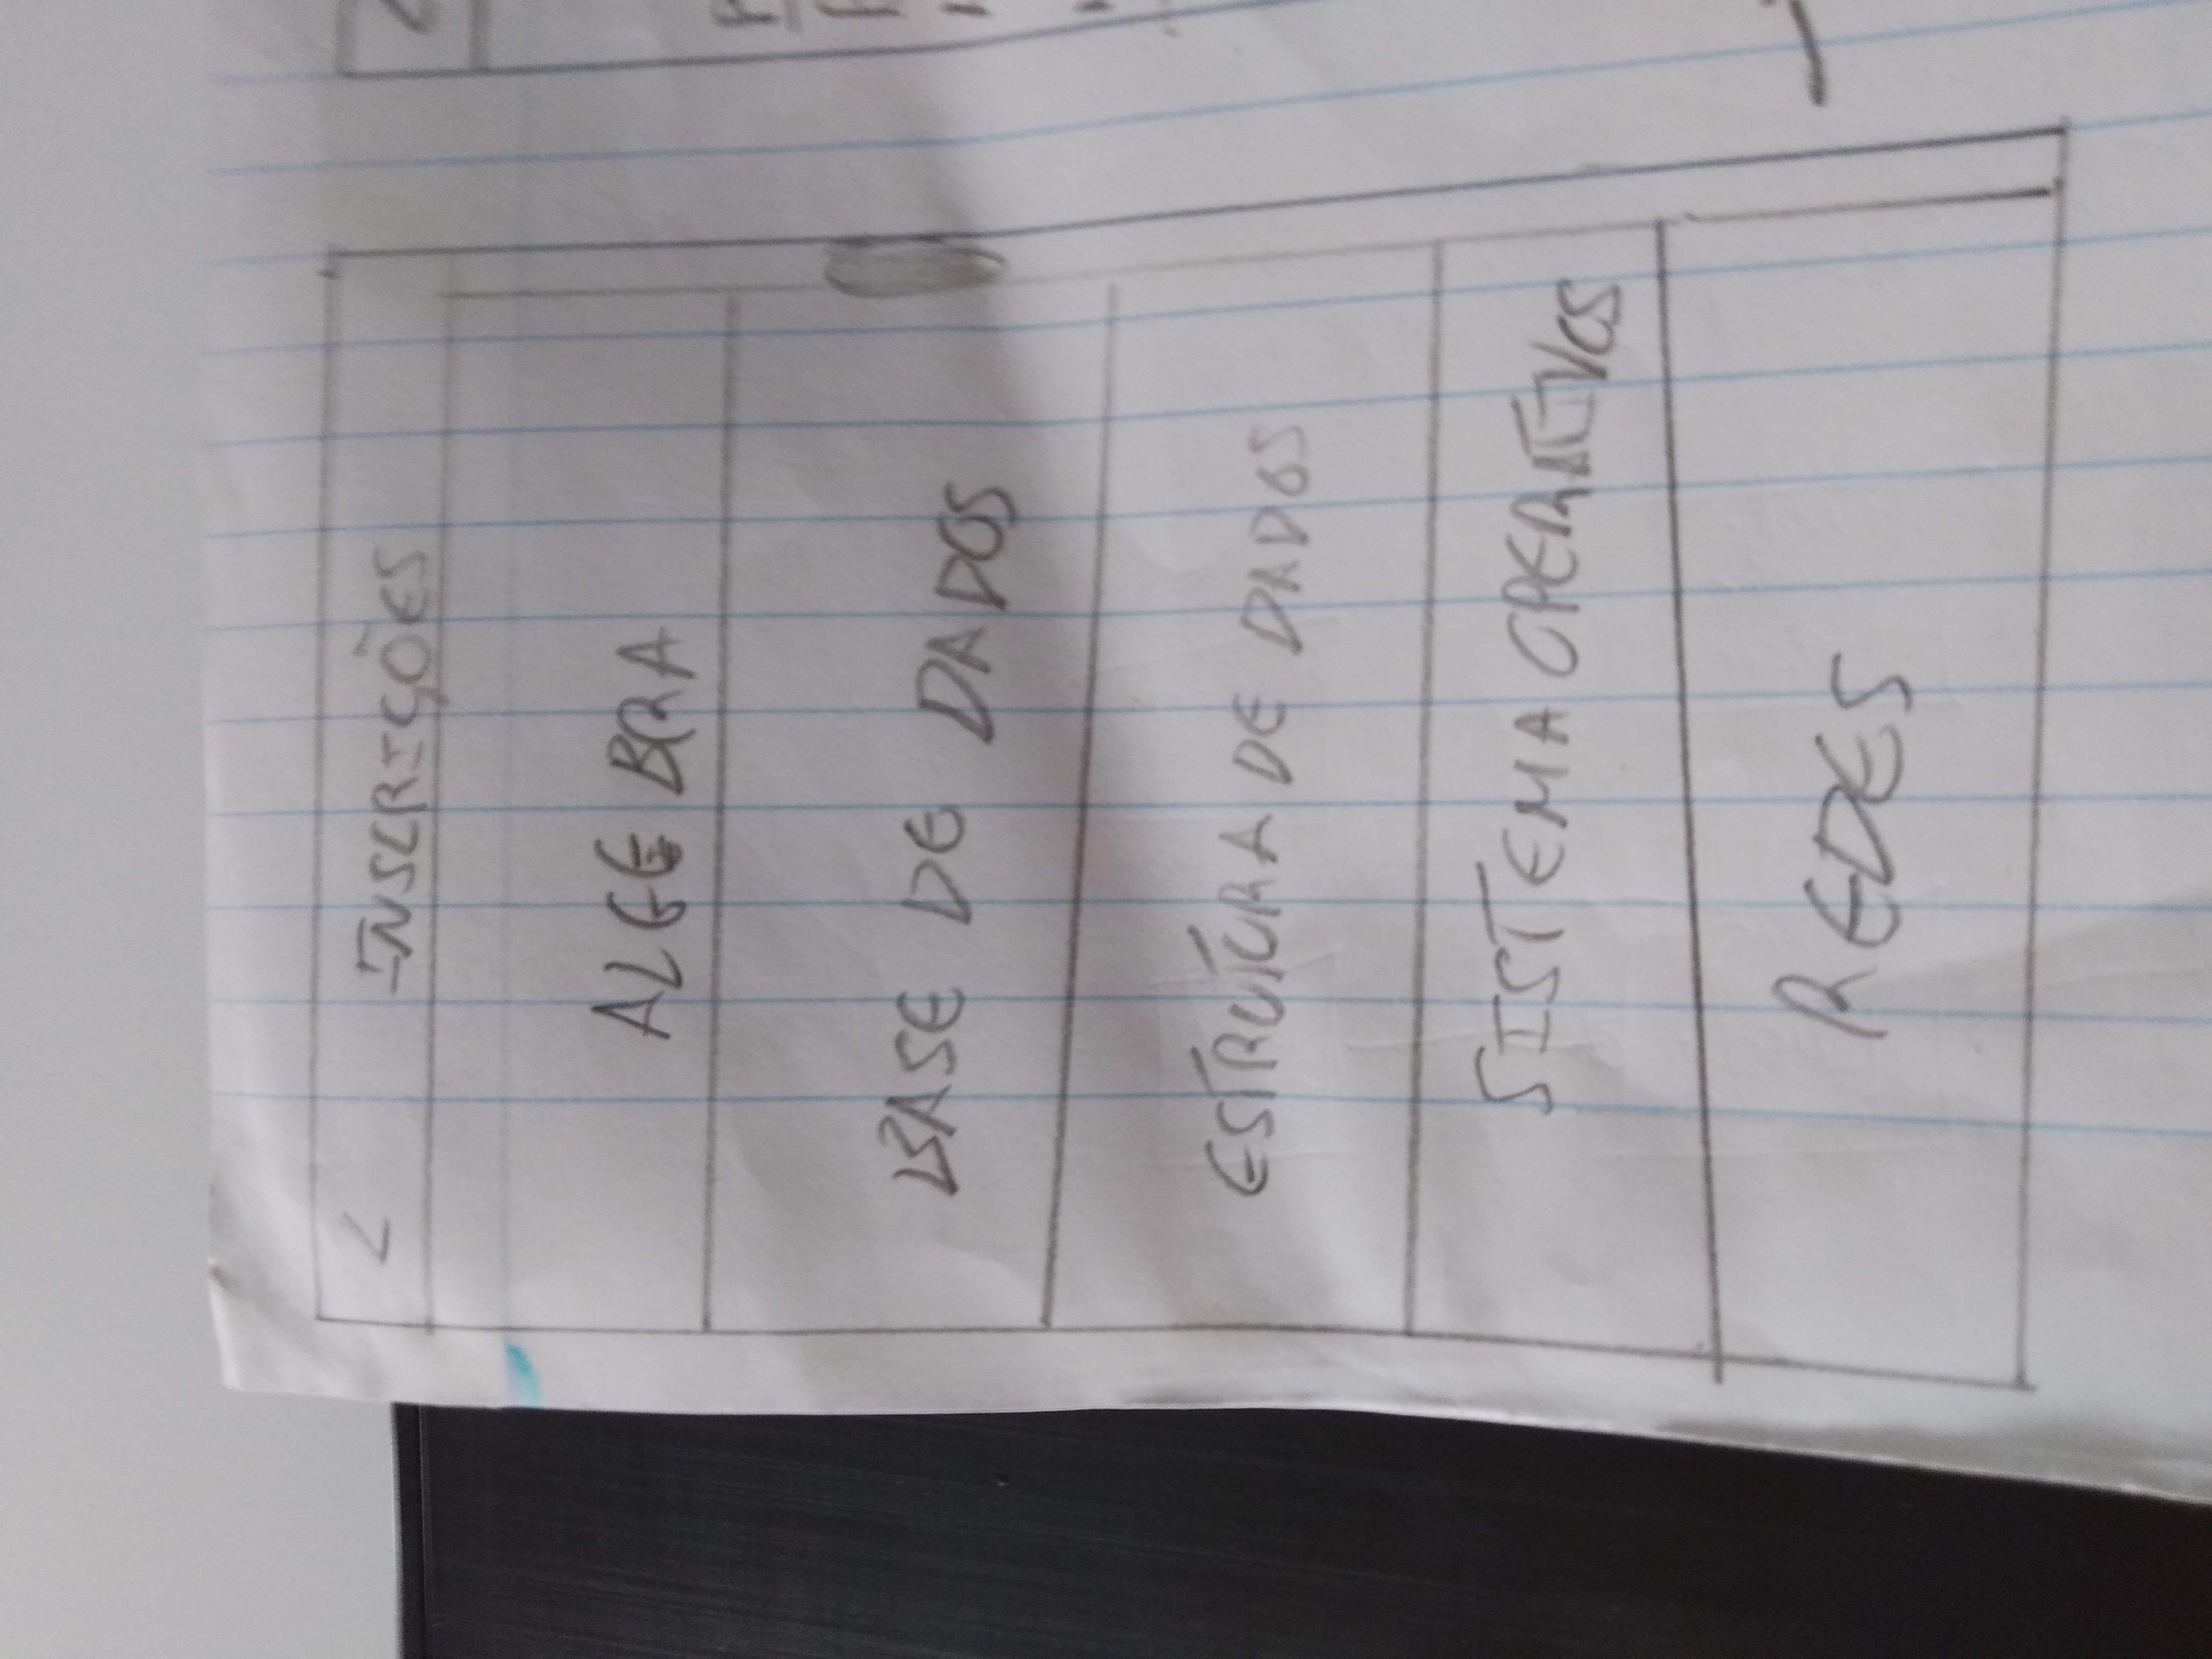 < INSCRIÇÕES
ALGEBRA
BASE DE DADOS
ESTRUTURA DE DADOS
SISTEMA OPERATIVOS
REDES